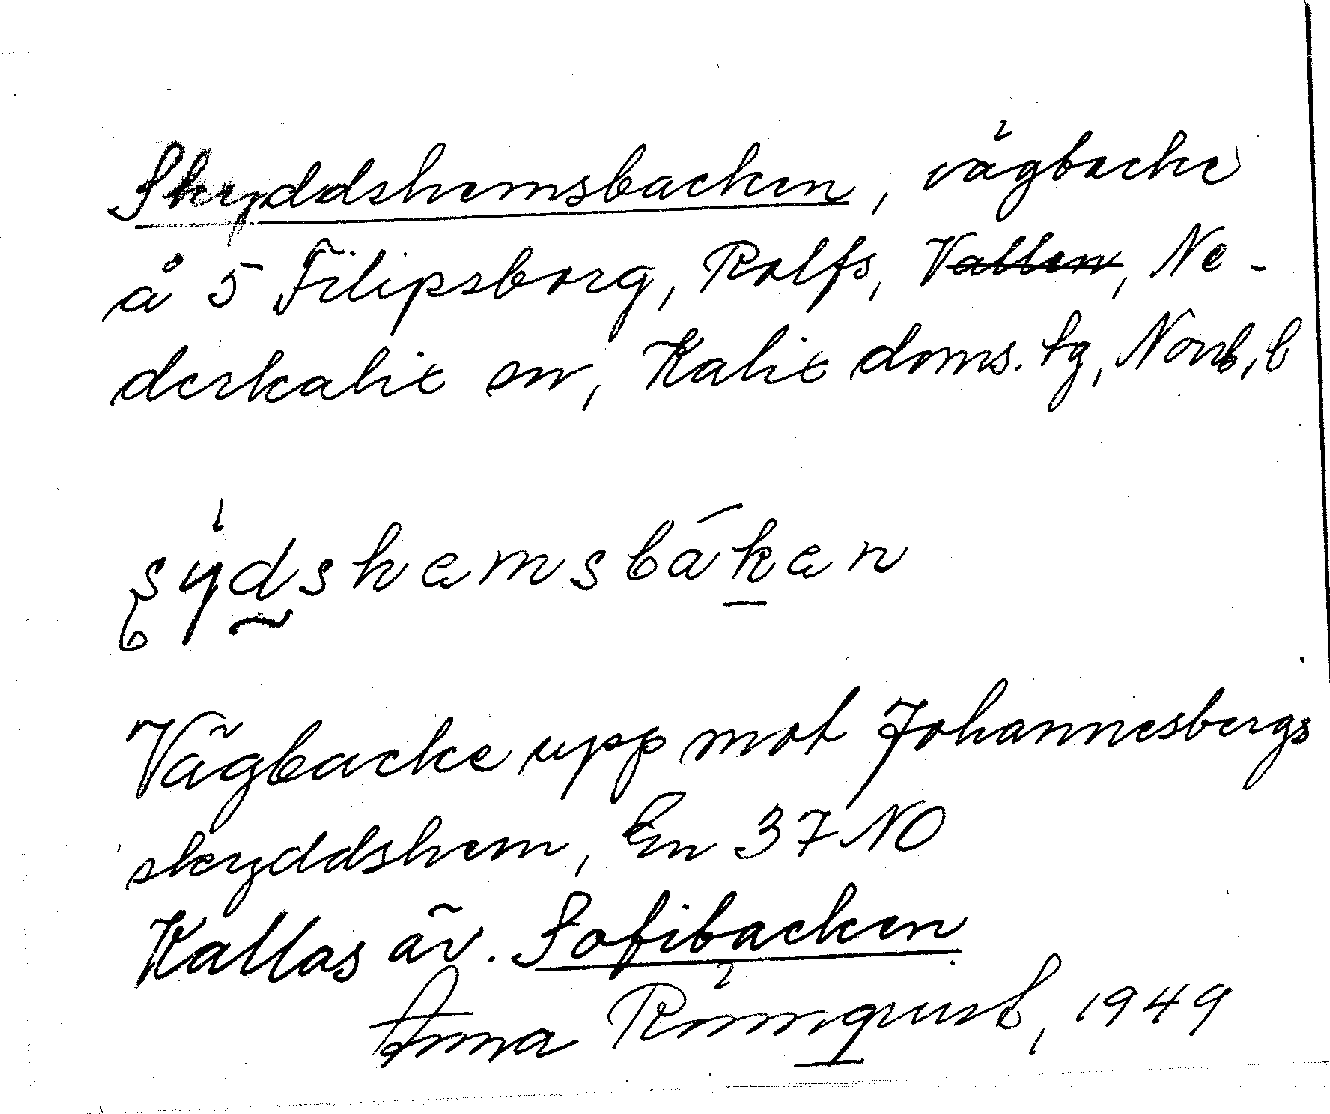 Skyddshemsbacken, vägbacke
å 5 Filipsborg, Rolfs, Vallen, Ne-
derkalix sn, Kalix doms. tg, Norrb. l
ʂýdshemsbáken
Vägbacke upp mot Johannesbergs
skyddshem, En 37 NO
Kallas äv. Sofibacken
Anna Rönnquist, 1949